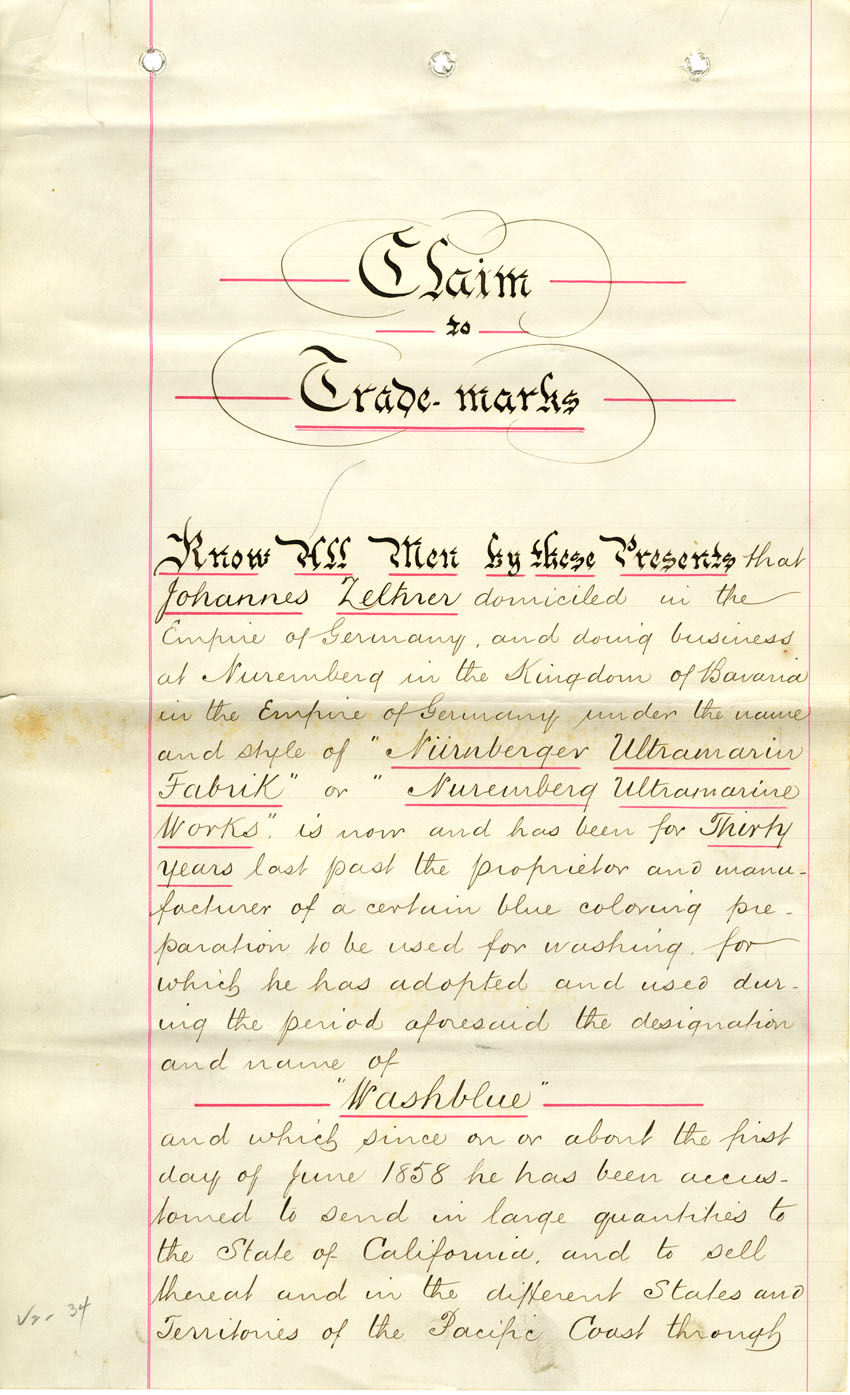 Claim
to
Trade-marks
Know All Men by these Presents that
Johannes Zeltner domiciled in the
Empire of Germany, and doing business
at Nuremberg in the Kingdom of Bavaria
in the Empire of Germany under the name
and style of "Nürnberger Ultramarin
Fabrik" or "Nuremberg Ultramarine
Works", is now and has been for Thirty
Years last past the proprietor and manu-
facturer of a certain blue coloring pre-
paration to be used for washing, for
which he has adopted and used dur-
ing the period aforesaid the designation
and name of
"Washblue"
and which since on or about the first
day of June 1858 he has been accus-
tomed to send in large quantities to
the State of California, and to sell
thereat and in the different States and
Territories of the Pacific Coast through
34